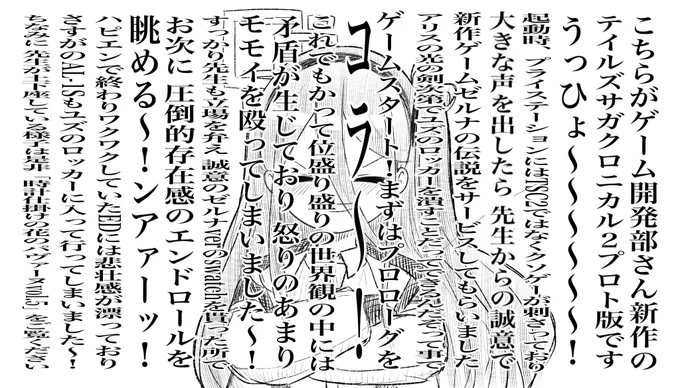 こちらがゲーム開発部さん新作の
テイルズサガクロニカル2プロト版です
うっひょ〜〜〜〜〜〜!
起動時、プライステーションにはTSC2ではなくクソゲーが刺さっており
大きな声を出したら 先生からの誠意で
新作ゲームゼルナの伝説をサービスしてもらいました
アリスの光の剣次第でユズのロッカーを潰すことだってできんだぞって事で
ゲームスタート!まずはプロローグを
コラ〜!
これでもかって位盛り盛りの世界観の中には
矛盾が生じており怒りのあまり
モモイを殴ってしまいました〜!
すっかり先生も立場を弁え 誠意のゼルナverのswatchを貰った所で
お次に 圧倒的存在感のエンドロールを
眺める〜!ンアァーッ!
ハピエンで終わりワクワクしていたEDには悲壮感が漂っており
さすがのAL-1Sもユズのロッカーに入って行ってしまいました〜!
ちなみに先生が土下座している様子は是非「時計仕掛けの花のパヴァーヌvol.5」をご覧ください